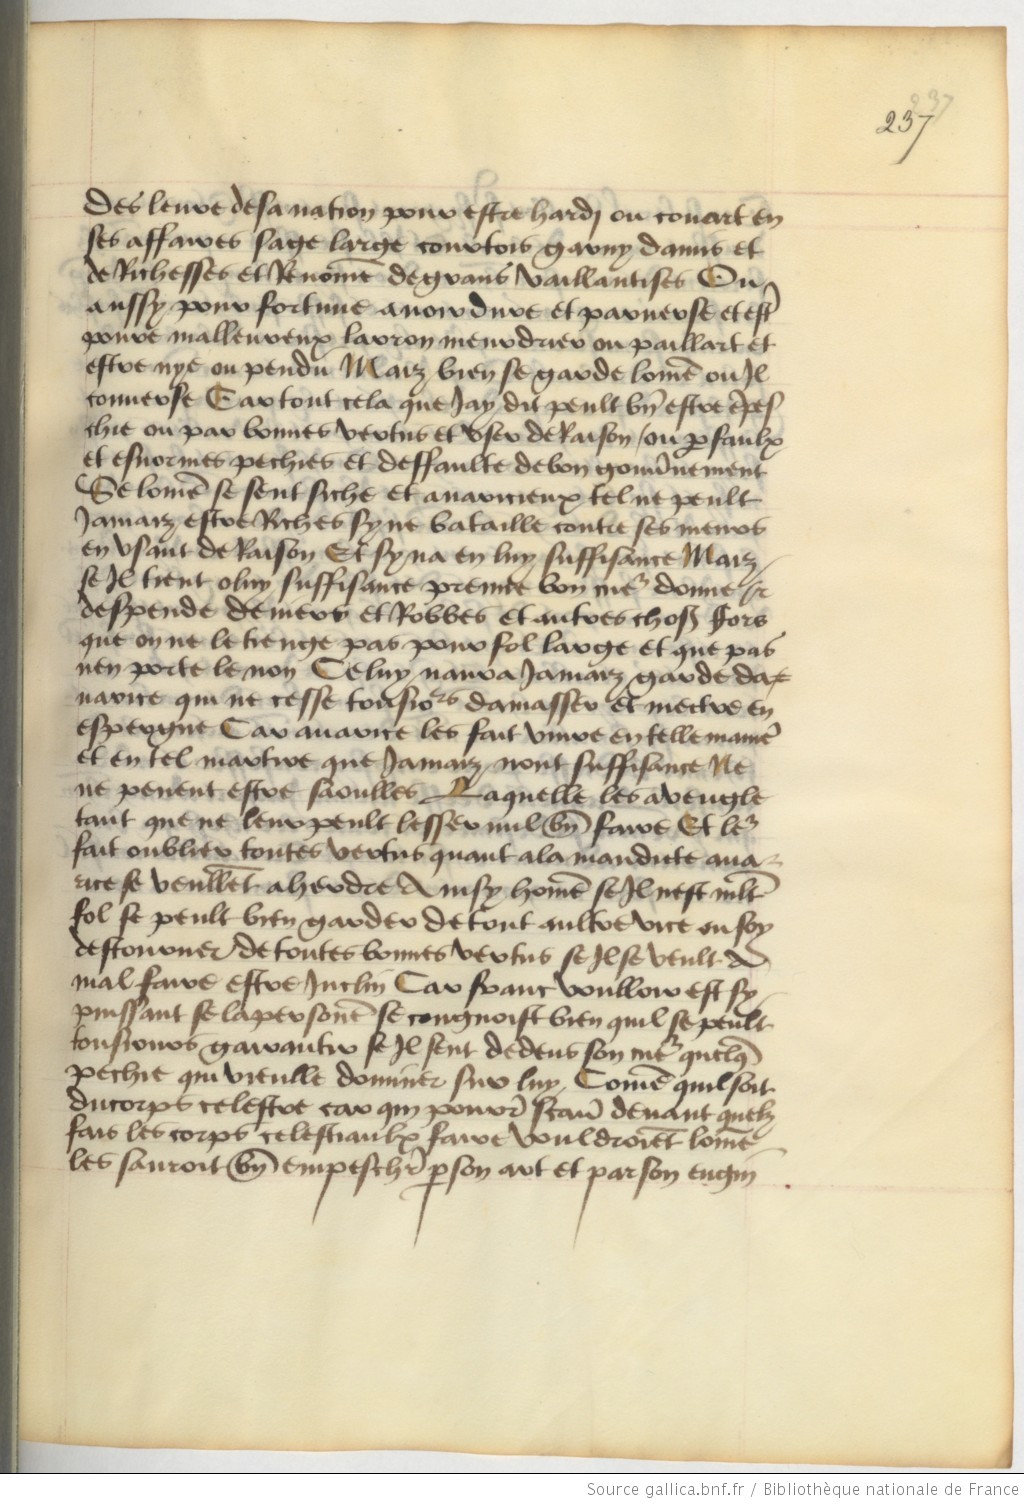 237
237
Des leure desa nation pour estre hardj ou couart en
ses affaires sage large courtois garny damis et
de Richesses et Renomē degrans vaillantises Ou
aussy pour fortune auoir dure et paruerse et est
poure malleureux larron meurdrier ou paillart et
estre nye ou pendu Maiz bien se garde lomē ou Jl
conuerse Car tout cela que Jay dit peult bn̄ estre
chie ou par bonnes vertus et vser deRaison / ou p faulx
et esnormes pechies et deffaulte debon gouūnement
Se lomē se sent siche et auaricieux tel ne peult
Jamaiz estre Riches sy ne bataille contre ses meurs
en vsant de Raison Et sy na en luy suffisance Maiz
se Jl tient o luy suffisance preingne bon cuer donne et
despende deniers et Robbes et autres chos Fors
que on ne le tienge pas pour fol large et que pas
nen porte le non Celuy naura Jamaiz garde da-
uarice qui ne cesse tousiors damasser et mectre en
espergne Car auarice les fait viure en telle manie
et en tel martire que Jamaiz nont suffisance Ne
ne peuent estre saoulles Laquelle les aveugle
tant que ne leur peult lesser nul bn̄ faire Et le
fait oublier toutes vertus quant ala maudicte aua-
rice se veullēt aherdre Ainsy homē se Jl nest mlt
fol se peult bien garder de tout aultre vice ou soy
destourner de toutes bonnes vertus se Jl se veult A
mal faire estre Jnclin Car franc voulloir est sy
puissant se la personē se congnoist bien quil se peult
tousiours garantir se Jl sent dedens son cue quelq
pechie qui vieulle dominer sur luy Comē quil soit
ducorps celestre car qui pourr scau deuant quelz
fais les corps celestiaulx faire vouldroiēt lomē
les sauroit bn̄ empesch p son art et par son engin
Source gallica.bnf.fr / Bibliothèque nationale de France